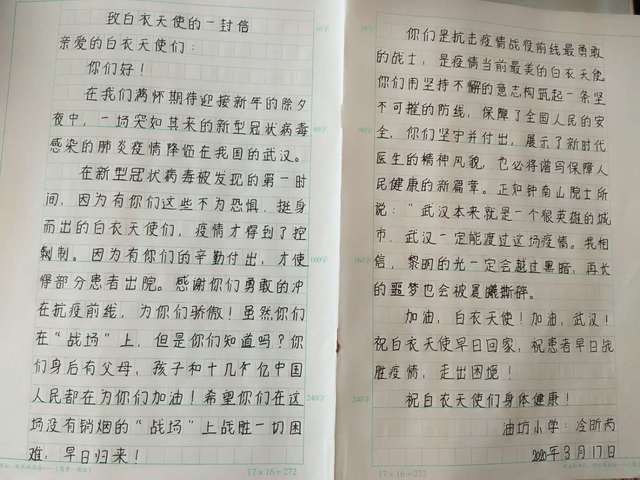 致白衣天使的一封信
亲爱的白衣天使们：
你们好！
在我们满怀期待迎接新年的除夕
夜中，一场突如其来的新型冠状病毒
感染的肺炎疫情降临在我国的武汉。
在新型冠状病毒被发现的第一时
间，因为有你们这些不为恐惧，挺身
而出的白衣天使们，疫情才得到了控
制。因为有你们的辛勤付出，才使
得部分患者出院。感谢你们勇敢的冲
在抗疫前线，为你们骄傲！虽然你们
在“战场”上，但是你们知道吗？你
们身后有父母，孩子和十几亿中国
人民都在为你们加油！希望你们在这
场没有销烟的“战场”上战胜一切困
难，早日归来！
17×16=272
你们是抗击疫情战役前线最勇敢
的战士，是疫情当前最美的白衣天使
你们用坚持不懈的意志构筑起一条坚
不可摧的防线，保障了全国人民的安
全，你们坚守并付出，展示了新时代
医生的精神风貌，也必将谱写保障人
民健康的新篇章。正如钟南山院士所
说：“武汉本来就是一个很英雄的城
市，武汉一定能渡过这场疫情。我相
信，黎明的光一定会越过黑暗，再长
的噩梦也会被晨曦撕碎。
加油，白衣天使！加油，武汉！
祝白衣天使早日回家，祝患者早日战
胜疫情，走出困境！
祝白衣天使们身体健康！
油坊小学：冷昕芮
2020年3月17日
17×16=272